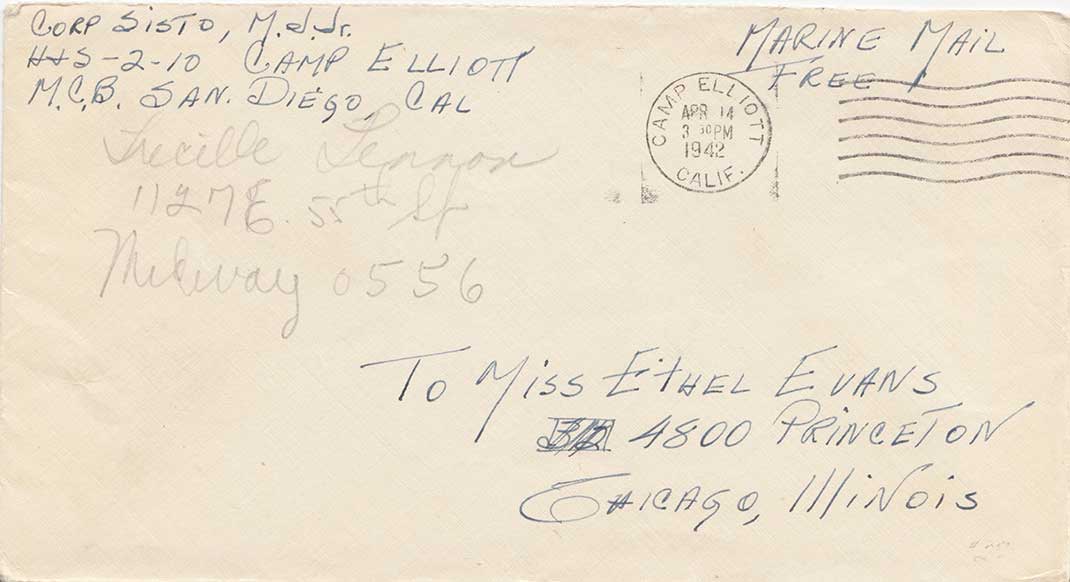 CORP SISTO, M.J.Jr.
H&S-2-10 CAMP ELLIOTT
M.C.B. SAN. DIEGO, CAL
MARINE MAIL
FREE
CAMP ELLIOTT
APR 14
3 30 PM
1942
CALIF.
Lucille Lennon
1127 E. 55th St
Midway 0556
To Miss Ethel Evans
4800 PRINCETON
CHICAGO, Illinois